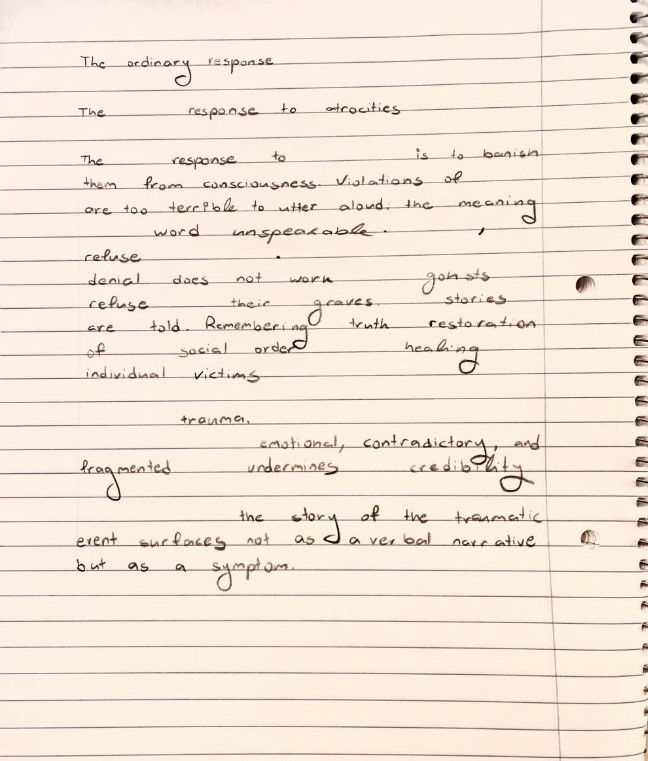 The ordinary response
The response to atrocities
The response to is to banish
them from consciousness. Violations of
are too terrible to utter aloud: the meaning
word unspeakable. ,
refuse .
denial does not work gohsts
refuse their graves. stories
are told. Remembering truth restoration
of social order healing
individual victims
trauma.
emotional, contradictory, and
fragmented undermines credibility
the story of the traumatic
event surfaces not as a verbal narrative
but as a symptom.